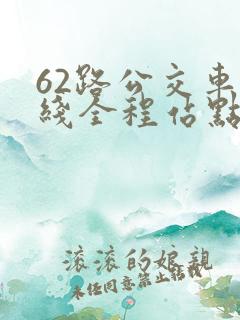 62路公交車
綫全程佔點
滚滚的娘親
未任同意禁止转载